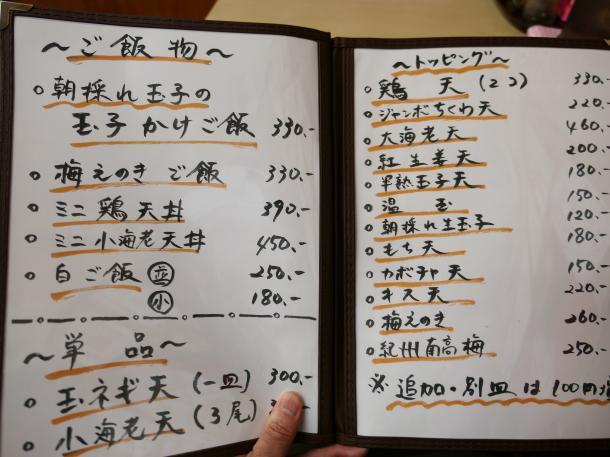 ～ご飯物～
○朝採れ玉子の
玉子かけご飯 330.-
○梅えのきご飯 330.-
○ミニ鶏天丼 390.-
○ミニ小海老天丼 450.-
○白ご飯 並 250.-
小 180.-
～単品～
○玉ネギ天(一皿) 300.-
○小海老天(3尾)
～トッピング～
○鶏天(2コ) 330.-
○ジャンボちくわ天 220.-
○大海老天 460.-
○紅生姜天 200.-
○半熟玉子天 180.-
○温玉 150.-
○朝採れ生玉子 120.-
○もち天 180.-
○カボチャ天 150.-
○キス天 220.-
○梅えのき 260.-
○紀州南高梅 250.-
※追加・別皿は100円増